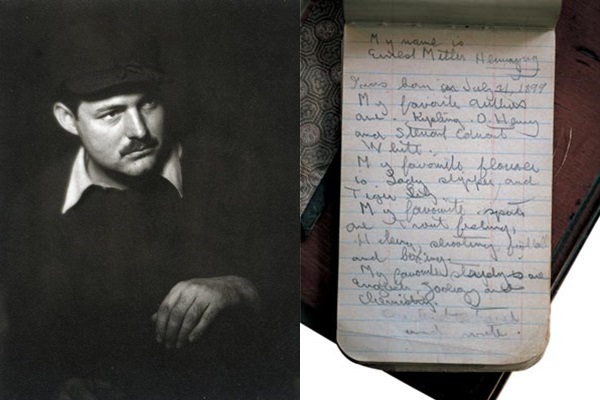 My name is
Ernest Miller Hemingway
I was born on July 21, 1899
My favorite authors
are Kipling, O. Henry
and Steuart Edward
White.
My favorite flower
is Lady slipper and
Tiger Lily.
My favorite sports
are Trout fishing,
Hiking, shooting, football
and boxing.
My favorite studies are
English, Zoology and
Chemistry.
and write.